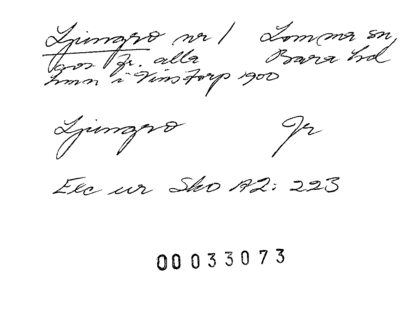 Ljungro nr 1 Lomma sn,
hos Jr. alla Bara hd
hmn i Vinstorp 1900
Ljungro Jr
Exc ur Sko A2: 223
00033073